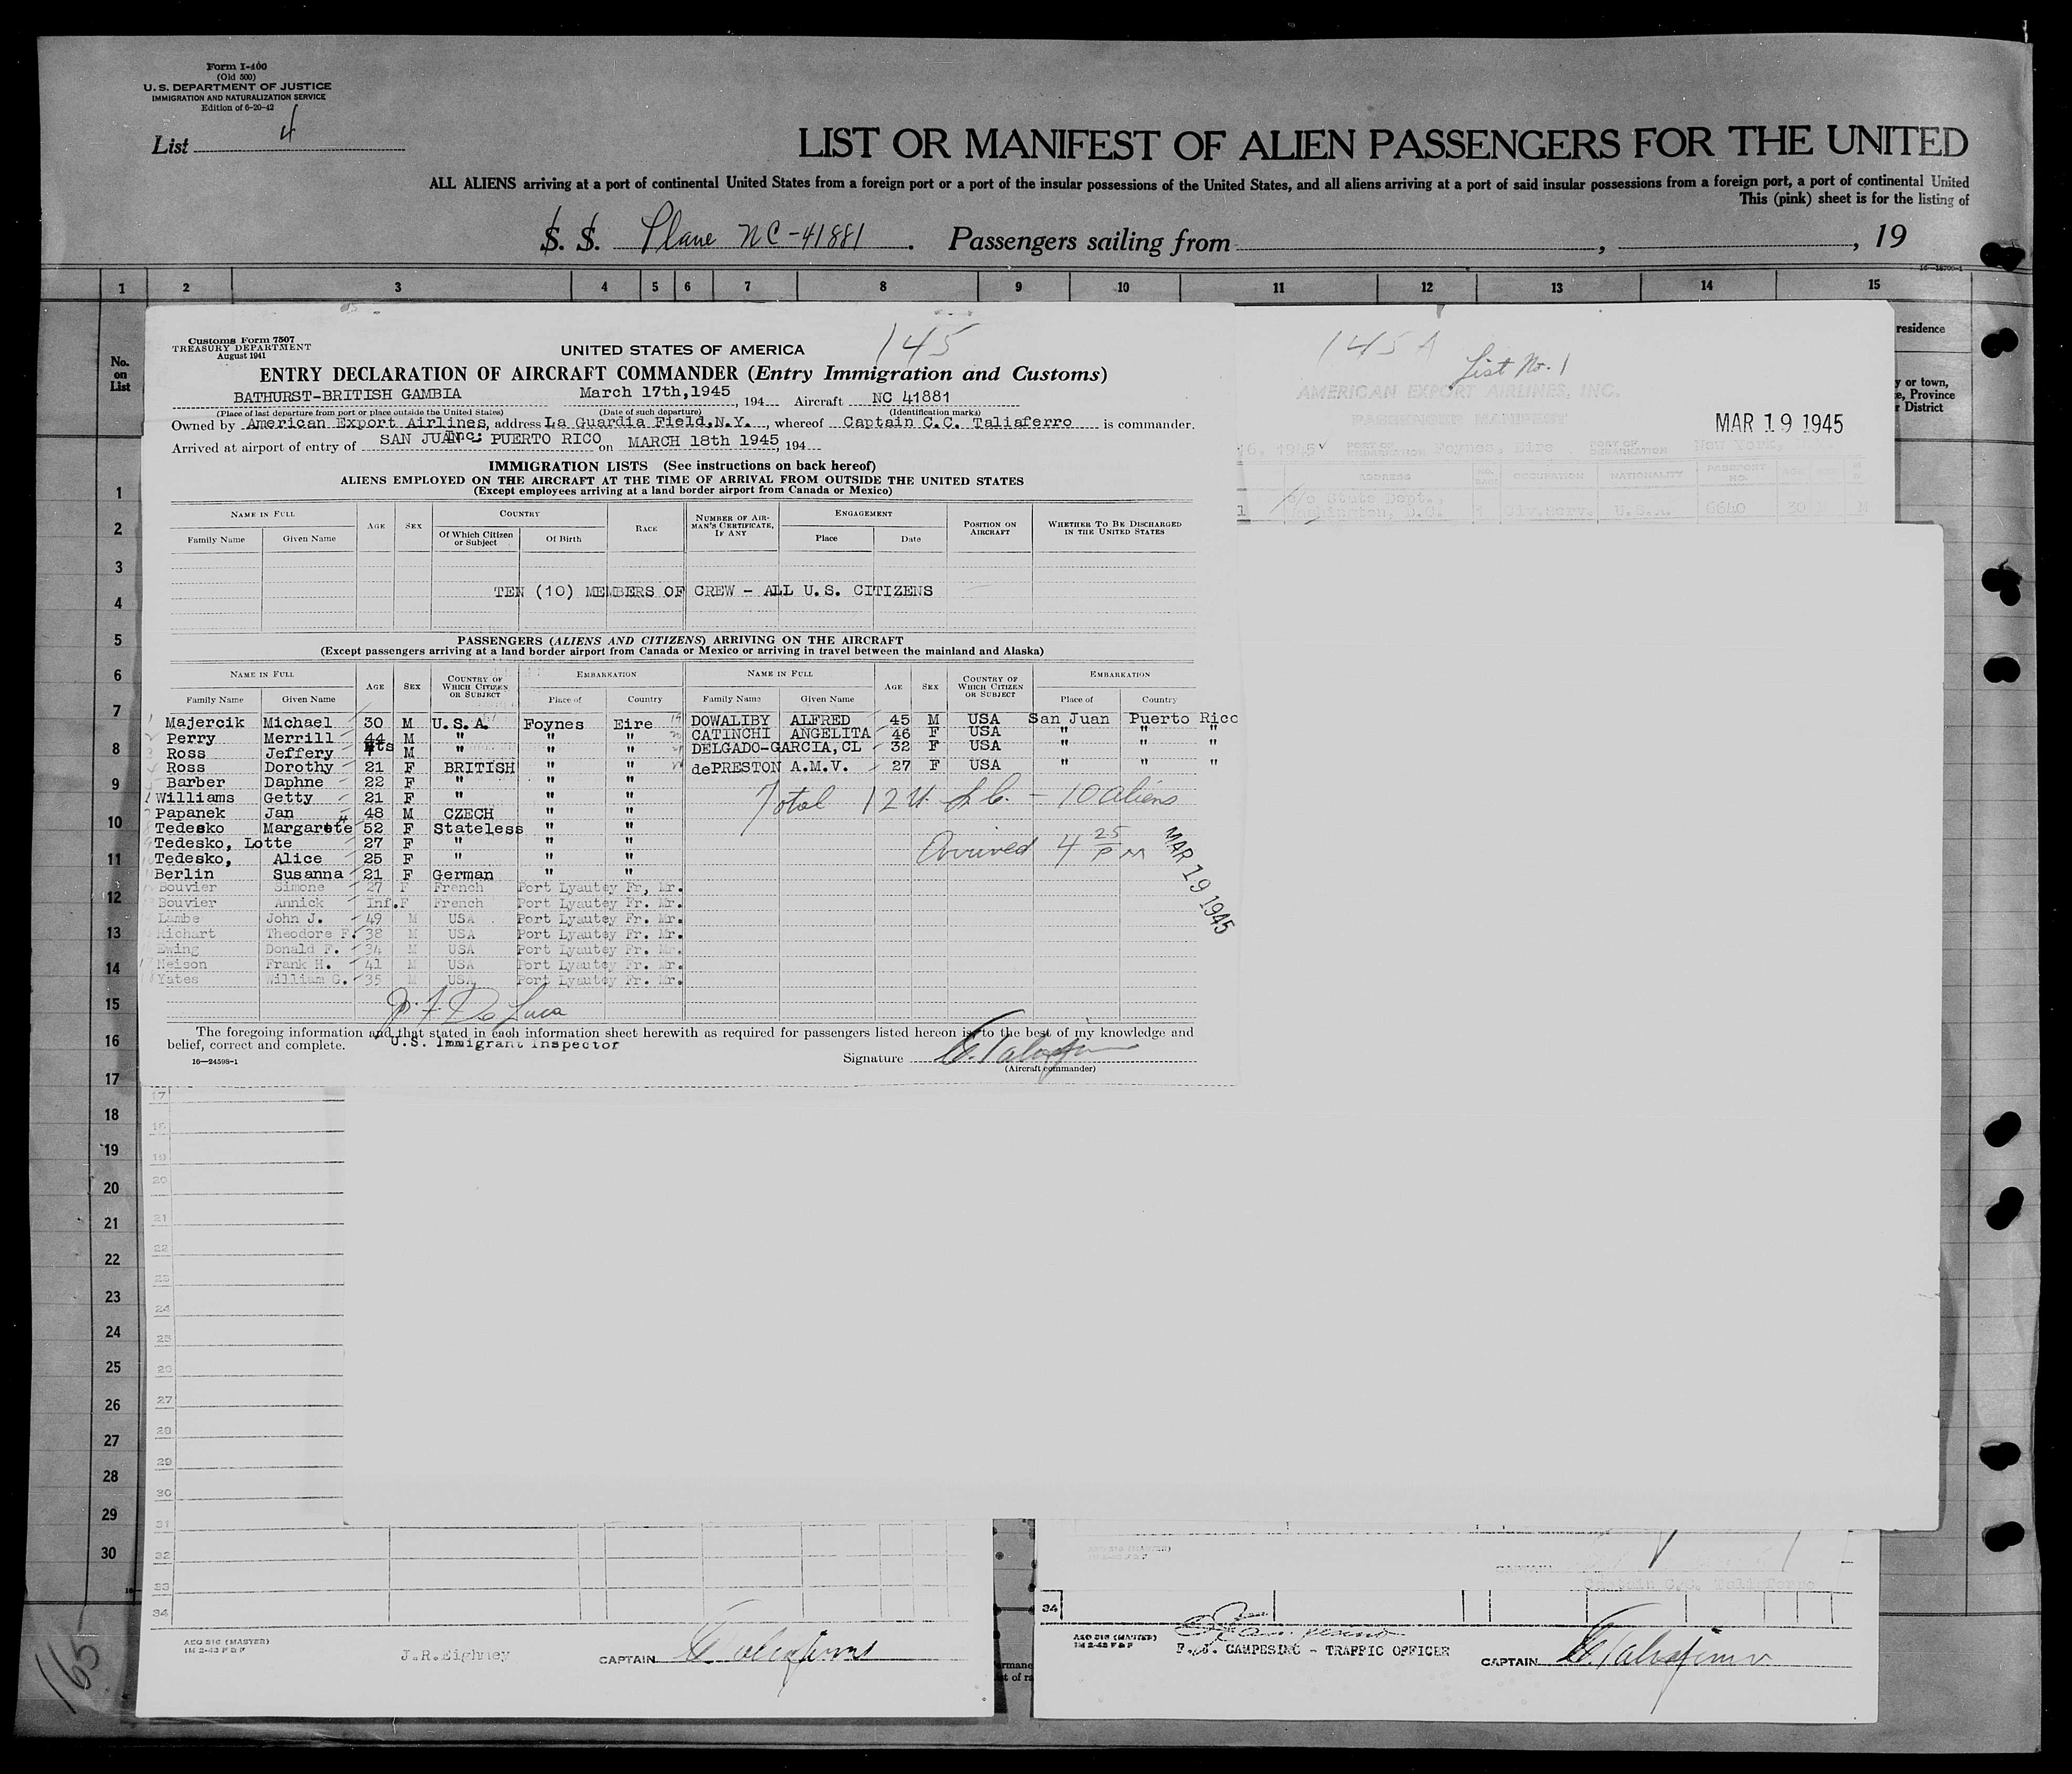 Form I-400
(Old 500)
U. S. DEPARTMENT OF JUSTICE
IMMIGRATION AND NATURALIZATION SERVICE
Edition of 6-20-42
List 4
LIST OR MANIFEST OF ALIEN PASSENGERS FOR THE UNITED
ALL ALIENS arriving at a port of continental United States from a foreign port or a port of the insular possessions of the United States, and all aliens arriving at a port of said insular possessions from a foreign port, a port of continental United
This (pink) sheet is for the listing of
S. S. Plane NC-41881. Passengers sailing from , , 19
1 2 3 4 5 6 7 8 9 10 11 12 13 14 15
No. on List
residence
y or town,
e, Province
District
Customs Form 7507
TREASURY DEPARTMENT
August 1941
UNITED STATES OF AMERICA
145
ENTRY DECLARATION OF AIRCRAFT COMMANDER (Entry Immigration and Customs)
BATHURST-BRITISH GAMBIA March 17th,1945, 194 Aircraft NC 41881
(Place of last departure from port or place outside the United States) (Date of such departure) (Identification marks)
Owned by American Export Airlines, Inc. address La Guardia Field,N.Y., whereof Captain C.C. Taliaferro is commander.
Arrived at airport of entry of SAN JUAN PUERTO RICO on MARCH 18th 1945, 194
IMMIGRATION LISTS (See instructions on back hereof)
ALIENS EMPLOYED ON THE AIRCRAFT AT THE TIME OF ARRIVAL FROM OUTSIDE THE UNITED STATES
(Except employees arriving at a land border airport from Canada or Mexico)
NAME IN FULL AGE SEX COUNTRY RACE NUMBER OF AIRMAN'S CERTIFICATE, IF ANY ENGAGEMENT POSITION ON AIRCRAFT WHETHER TO BE DISCHARGED IN THE UNITED STATES
Family Name Given Name Of Which Citizen or Subject Of Birth Place Date
TEN (10) MEMBERS OF CREW - ALL U.S. CITIZENS
PASSENGERS (ALIENS AND CITIZENS) ARRIVING ON THE AIRCRAFT
(Except passengers arriving at a land border airport from Canada or Mexico or arriving in travel between the mainland and Alaska)
NAME IN FULL AGE SEX COUNTRY OF WHICH CITIZEN OR SUBJECT EMBARKATION NAME IN FULL AGE SEX COUNTRY OF WHICH CITIZEN OR SUBJECT EMBARKATION
Family Name Given Name Place of Country Family Name Given Name Place of Country
Majercik Michael 30 M U.S.A. Foynes Eire DOWALIBY ALFRED 45 M USA San Juan Puerto Rico
Perry Merrill 44 M " " " CATINCHI ANGELITA 46 F USA " " "
Ross Jeffery 7 Mts M " " " DELGADO-GARCIA, CL 32 F USA " " "
Ross Dorothy 21 F BRITISH " " dePRESTON A.M.V. 27 F USA " " "
Barber Daphne 22 F " " "
Williams Getty 21 F " " "
Papanek Jan 48 M CZECH " "
Tedesko Margarete 52 F Stateless " "
Tedesko, Lotte 27 F " " "
Tedesko, Alice 25 F " " "
Berlin Susanna 21 F German " "
Bouvier Simone 27 F French Port Lyautey Fr, Mr.
Bouvier Annick Inf. F French Port Lyautey Fr. Mr.
Lambe John J. 49 M USA Port Lyautey Fr. Mr.
Richart Theodore F. 38 M USA Port Lyautey Fr. Mr.
Ewing Donald F. 34 M USA Port Lyautey Fr. Mr.
Neison Frank H. 41 M USA Port Lyautey Fr. Mr.
Yates William G. 35 M USA Port Lyautey Fr. Mr.
Total 12 U.S.C. - 10 aliens
Arrived 4 25 PM
MAR 19 1945
The foregoing information and that stated in each information sheet herewith as required for passengers listed hereon is to the best of my knowledge and
belief, correct and complete.
U.S. Immigrant Inspector
16—24598-1
Signature
(Aircraft commander)
145 A
List No. 1
AMERICAN EXPORT AIRLINES, INC.
PASSENGER MANIFEST
MAR 19 1945
6, 1945 PORT OF EMBARKATION Foynes, Eire PORT OF DEBARKATION New York,
ADDRESS NO. BAGS OCCUPATION NATIONALITY PASSPORT NO. AGE
c/o State Dept.,
Washington, D.C. 1 Civ.Serv. U.S.A. 6640 30 M M
1
2
3
4
5
6
7
8
9
10
11
12
13
14
15
16
17
18
19
20
21
22
23
24
25
26
27
28
29
30
17
18
19
20
21
22
23
24
25
26
27
28
29
30
31
32
33
34
AEO 51C (MASTER)
1M 2-43 F & F
J.R.Eighney
CAPTAIN
34
AEO 51C (MASTER)
1M 2-43 F & F
F. J. CAMPESINO - TRAFFIC OFFICER
CAPTAIN
165